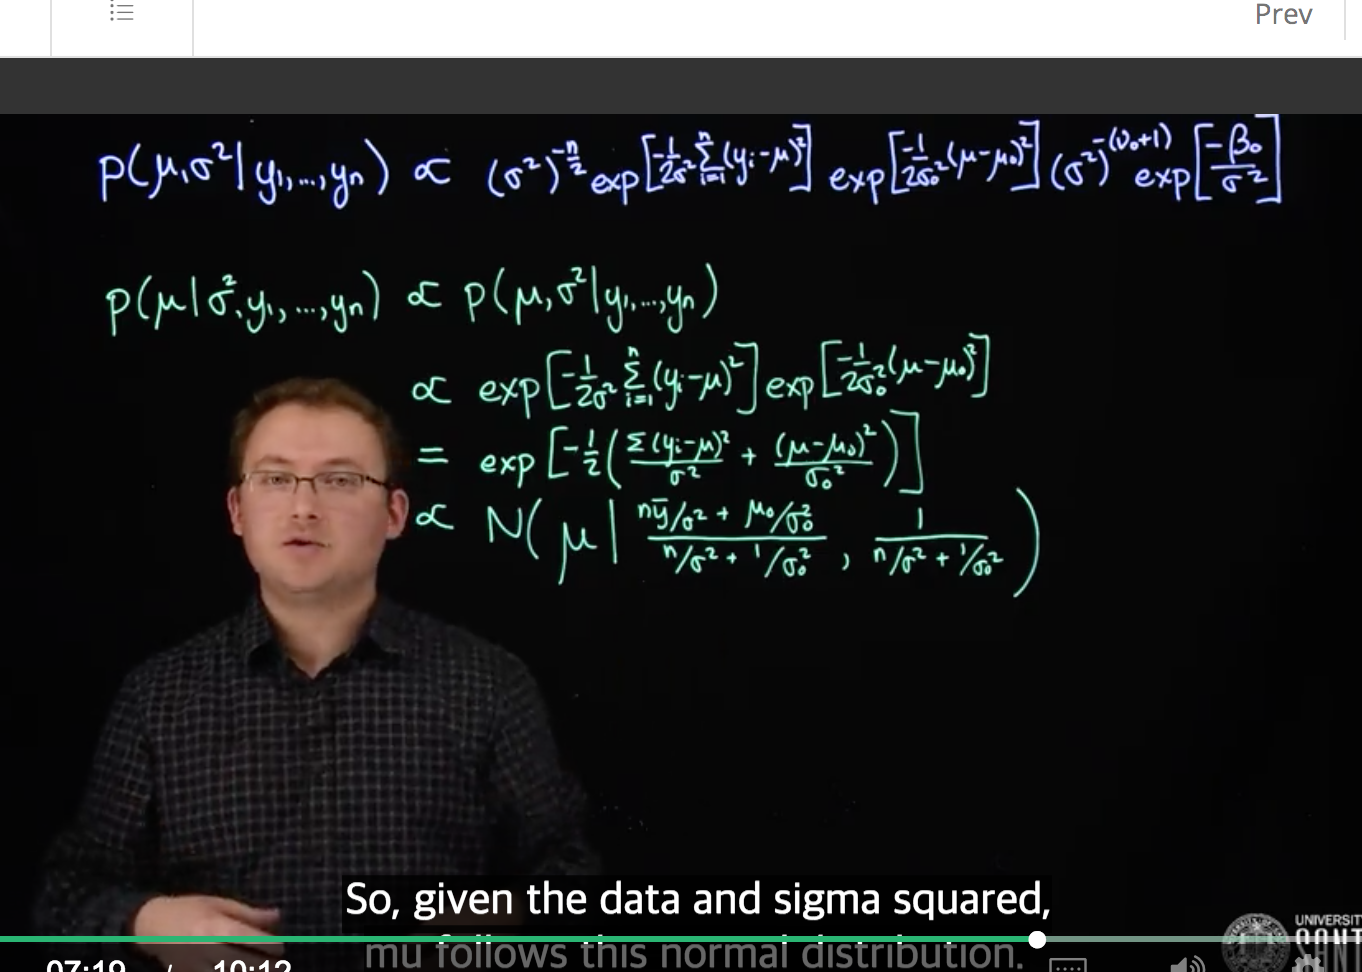 Prev
p(μ,σ²|y₁,...,yₙ) ∝ (σ²)^(-n/2) exp[-1/2σ² Σᵢ₌₁ⁿ(yᵢ-μ)²] exp[-1/2σ₀²(μ-μ₀)²] (σ²)^-(ν₀+1) exp[-β₀/σ²]
p(μ|σ²,y₁,...,yₙ) ∝ p(μ,σ²|y₁,...,yₙ)
∝ exp[-1/2σ² Σᵢ₌₁ⁿ(yᵢ-μ)²] exp[-1/2σ₀²(μ-μ₀)²]
= exp[-1/2(Σ(yᵢ-μ)²/σ² + (μ-μ₀)²/σ₀²)]
∝ N(μ| (nȳ/σ² + μ₀/σ₀²)/(n/σ² + 1/σ₀²), 1/(n/σ² + 1/σ₀²))
So, given the data and sigma squared,
mu follows this normal distribution.
UNIVERSITY
07:19 / 10:12